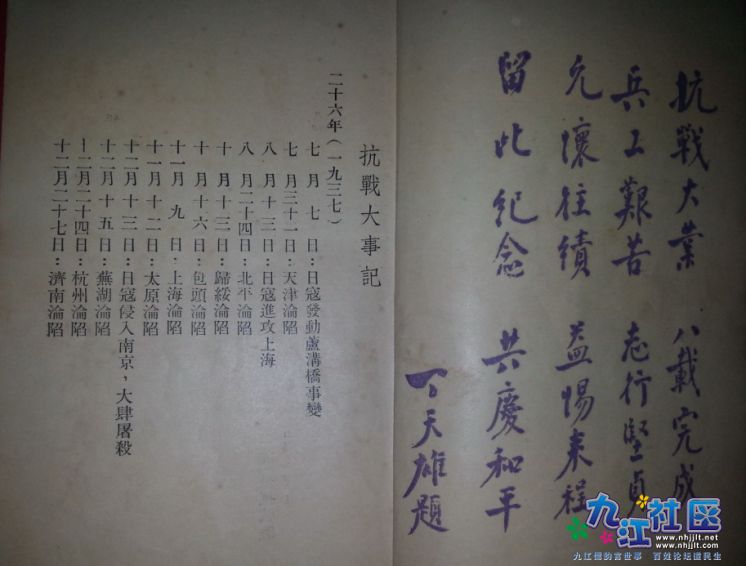 抗戰大業 八載完成
兵工艱苦 志行堅貞
允懷往績 益惕来程
留此紀念 共慶和平
丁天雄題
抗戰大事記
二十六年(一九三七)
七月七日:日寇發動蘆溝橋事變
七月三十一日:天津淪陷
八月十三日:日寇進攻上海
八月二十四日:北平淪陷
十月十三日:歸綏淪陷
十月十六日:包頭淪陷
十一月九日:上海淪陷
十一月十二日:太原淪陷
十二月十三日:日寇侵入南京,大肆屠殺
十二月十五日:蕪湖淪陷
十二月二十四日:杭州淪陷
十二月二十七日:濟南淪陷
九江社区
www.nhjjlt.net
www.nhjjlt.com
九江儒韵言世事 百姓论坛道民生